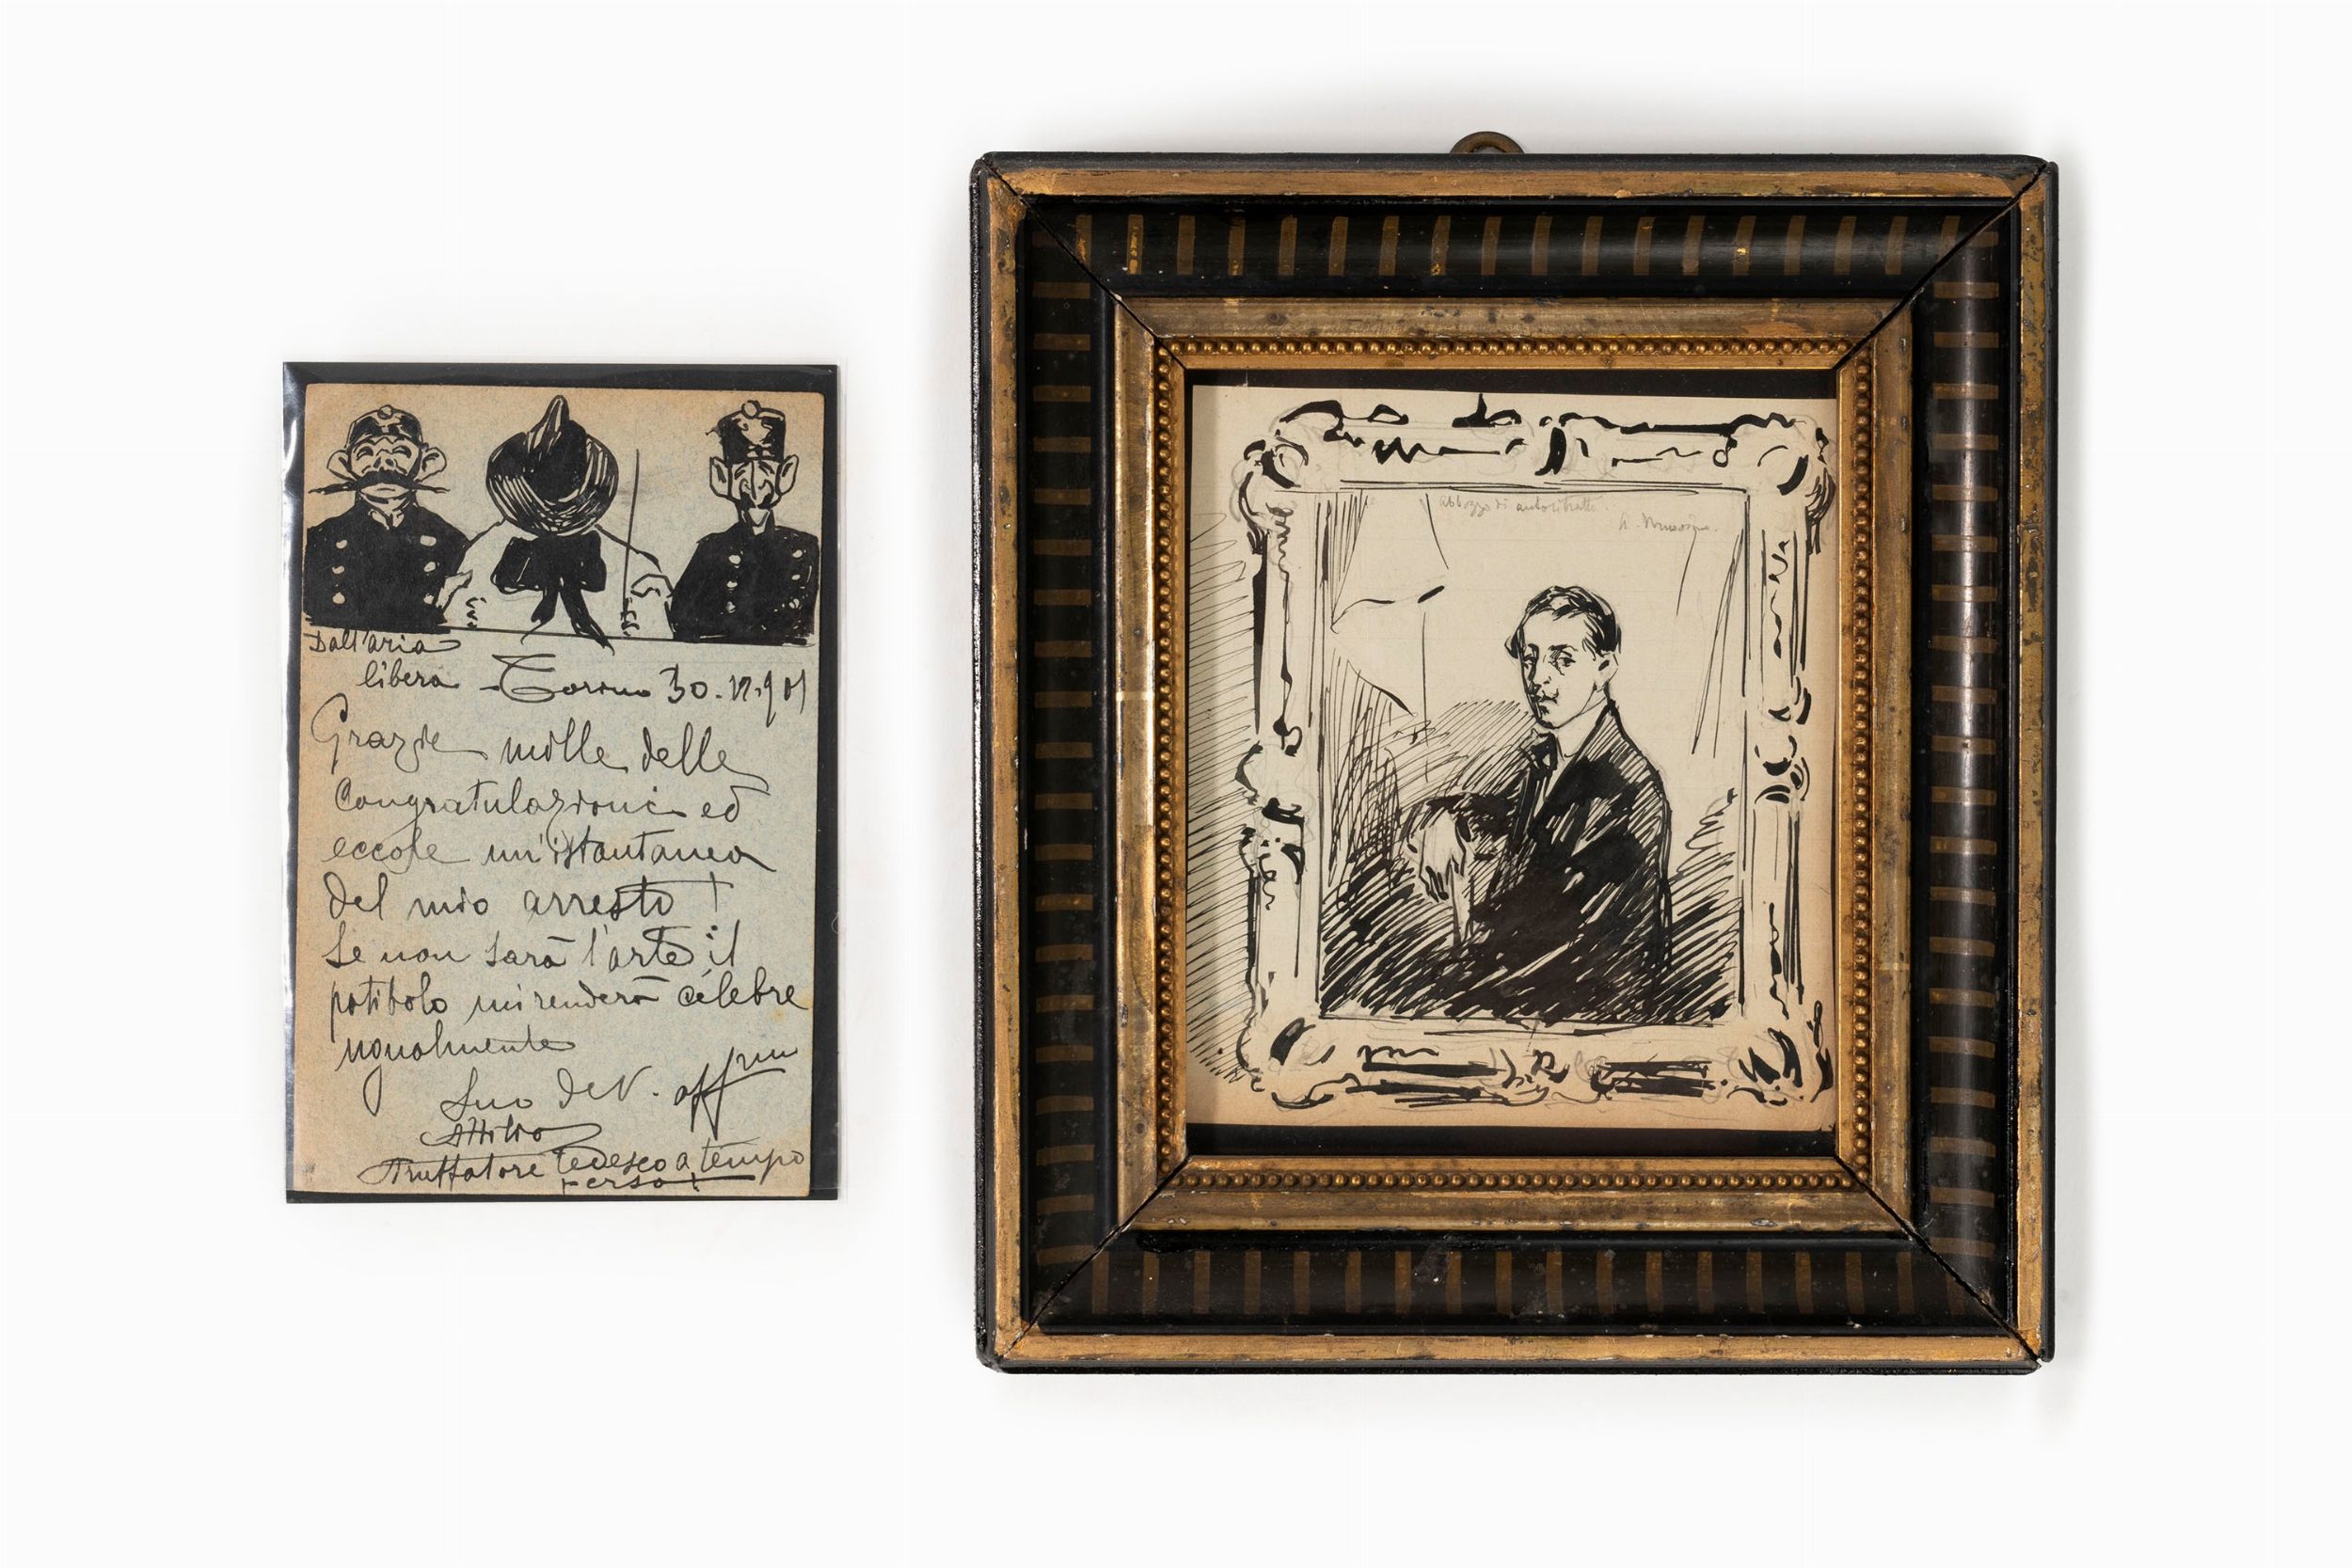 Dall'aria
libera - Torino 30.12.901
Grazie mille delle
Congratulazioni ed
eccole un'istantanea
del mio arresto!
Se non sarà l'arte il
patibolo mi renderà celebre
ugualmente
Suo dev. aff.mo
Attilio
Truffatore tedesco a tempo
perso!
abbozzo di autoritratto.
A. Mussino.